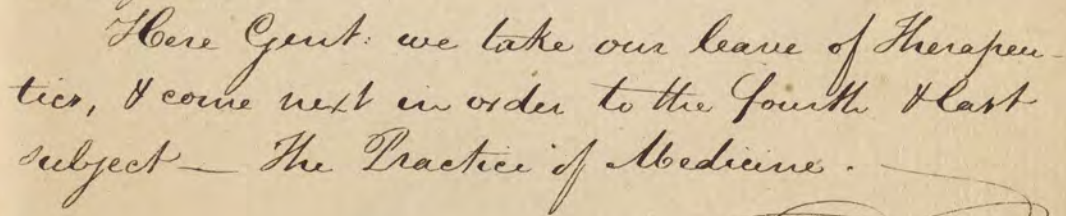 Here Gent: we take our leave of Therapeu-
tics, & come next in order to the fourth & last
subject — The Practice of Medicine. —